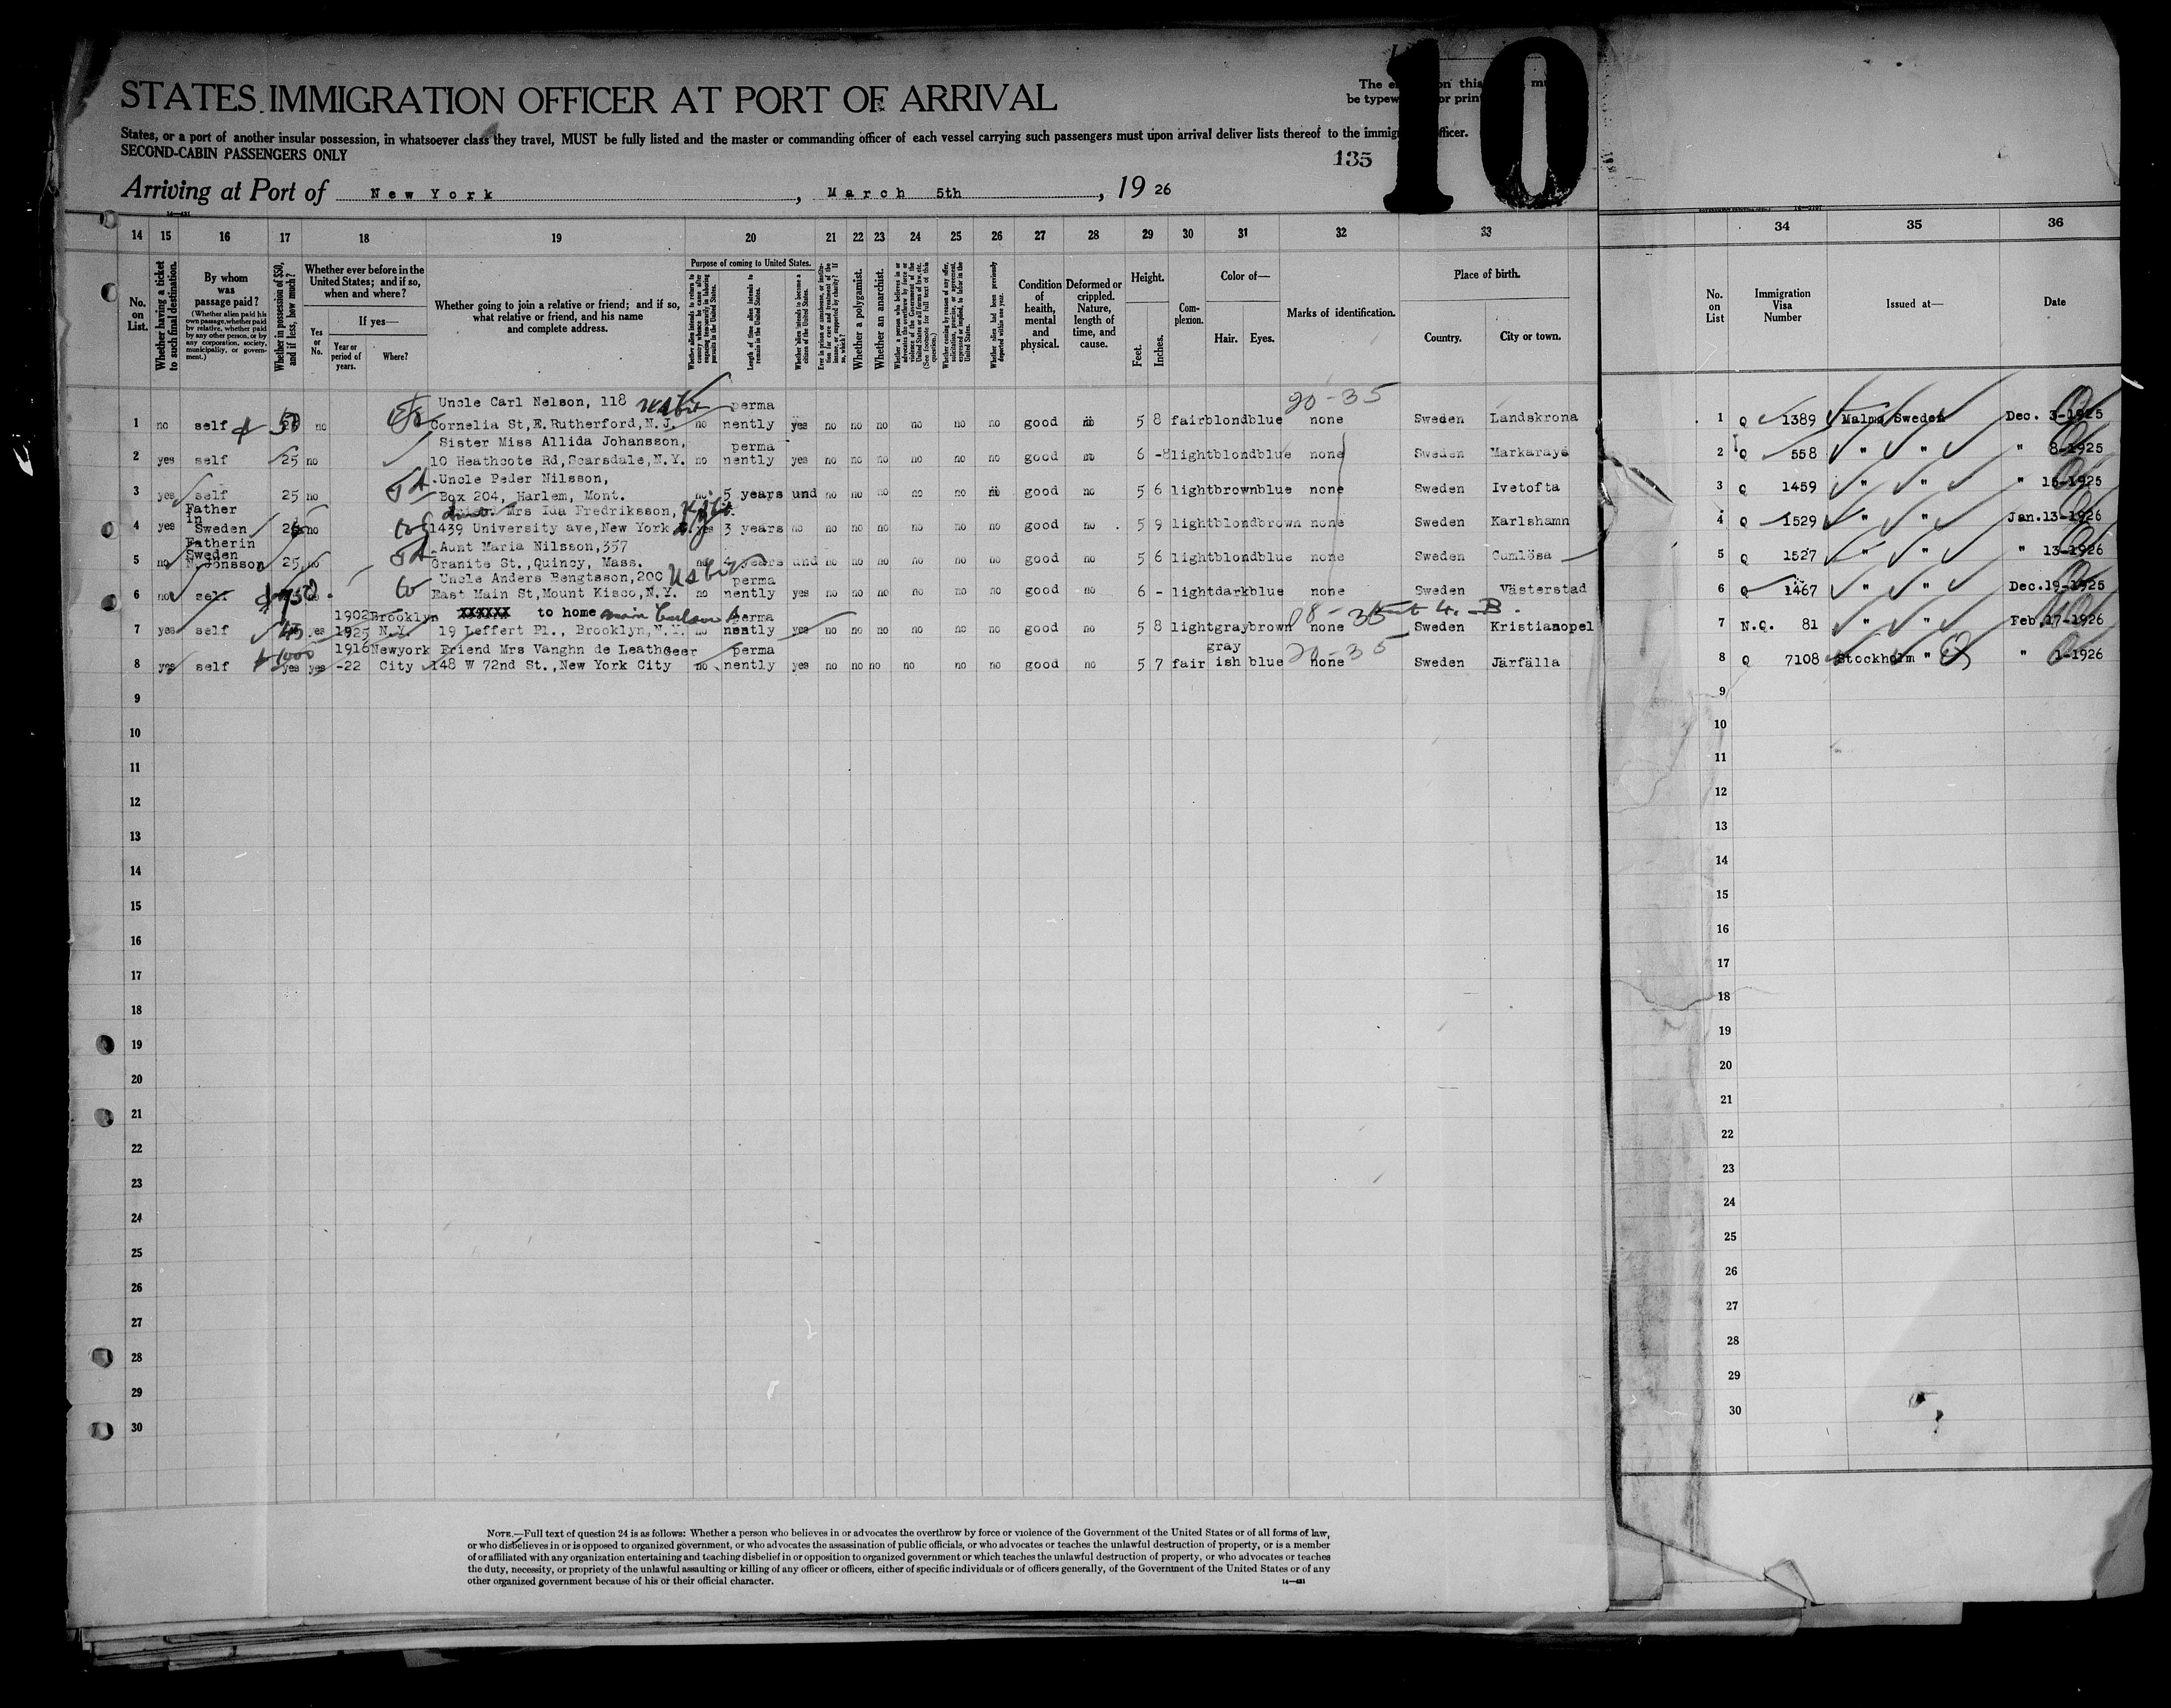 10
STATES IMMIGRATION OFFICER AT PORT OF ARRIVAL
States, or a port of another insular possession, in whatsoever class they travel, MUST be fully listed and the master or commanding officer of each vessel carrying such passengers must upon arrival deliver lists thereof to the immigr officer.
SECOND-CABIN PASSENGERS ONLY
135
Arriving at Port of New York, March 5th, 19 26
14 15 16 17 18 19 20 21 22 23 24 25 26 27 28 29 30 31 32 33 34 35 36
No. on List.
Whether having a ticket to such final destination.
By whom was passage paid?
(Whether alien paid his own passage, whether paid by relative, whether paid by any other person, or by any corporation, society, municipality, or government.)
Whether in possession of $50, and if less, how much?
Whether ever before in the United States; and if so, when and where?
If yes—
Yes or No.
Year or period of years.
Where?
Whether going to join a relative or friend; and if so, what relative or friend, and his name and complete address.
Purpose of coming to United States.
Length of time alien intends to remain in the United States.
Whether alien intends to become a citizen of the United States.
Whether a polygamist.
Whether an anarchist.
Condition of health, mental and physical.
Deformed or crippled. Nature, length of time, and cause.
Height.
Feet. Inches.
Complexion.
Color of—
Hair. Eyes.
Marks of identification.
Place of birth.
Country. City or town.
No. on List
Immigration Visa Number
Issued at—
Date
20-35
Uncle Carl Nelson, 118 perma
1 no self 50 no Cornelia St,E.Rutherford,N.J. no nently yes no no no no no no good no 5 8 fair blond blue none Sweden Landskrona 1 Q 1389 Malmo Sweden Dec. 3-1925
Sister Miss Allida Johansson, perma
2 yes self 25 no 10 Heathcote Rd,Scarsdale,N.Y. no nently yes no no no no no no good no 6 - light blond blue none Sweden Markaryd 2 Q 558 " " " 8-1925
Uncle Peder Nilsson,
3 yes self 25 no Box 204, Harlem, Mont. no 5 years und no no no no no no good no 5 6 light brown blue none Sweden Ivetofta 3 Q 1459 " " " 15-1925
Father in Mrs Ida Fredriksson,
4 yes Sweden no 1439 University ave,New York yes 3 years no no no no no no no good no 5 9 light blond brown none Sweden Karlshamn 4 Q 1529 " " Jan.13-1926
Fatherin Sweden Aunt Maria Nilsson,357
5 no N.Jönsson 25 no Granite St.,Quincy, Mass. no years und no no no no no no good no 5 6 light blond blue none Sweden Gumlösa 5 Q 1527 " " " 13-1926
Uncle Anders Bengtsson,200 perma
6 no self no East Main St,Mount Kisco,N.Y. no nently yes no no no no no no good no 6 - light dark blue none Sweden Västerstad 6 Q 1467 " " Dec.19-1925
1902 Brooklyn XXXXXX to home perma
7 yes self yes 1925 N.Y. 19 Leffert Pl., Brooklyn,N.Y. no nently yes no no no no no no good no 5 8 light gray brown none Sweden Kristianopel 7 N.Q. 81 " " Feb.17-1926
$1000 1916 Newyork Friend Mrs Vanghn de Leathgeer perma gray 20-35
8 yes self yes yes -22 City 148 W 72nd St.,New York City no nently yes no no no no no no good no 5 7 fair ish blue none Sweden Järfälla 8 Q 7108 Stockholm " " 1-1926
9 9
10 10
11 11
12 12
13 13
14 14
15 15
16 16
17 17
18 18
19 19
20 20
21 21
22 22
23 23
24 24
25 25
26 26
27 27
28 28
29 29
30 30
NOTE.—Full text of question 24 is as follows: Whether a person who believes in or advocates the overthrow by force or violence of the Government of the United States or of all forms of law,
or who disbelieves in or is opposed to organized government, or who advocates the assassination of public officials, or who advocates or teaches the unlawful destruction of property, or is a member
of or affiliated with any organization entertaining and teaching disbelief in or opposition to organized government or which teaches the unlawful destruction of property, or who advocates or teaches
the duty, necessity, or propriety of the unlawful assaulting or killing of any officer or officers, either of specific individuals or of officers generally, of the Government of the United States or of any
other organized government because of his or their official character.